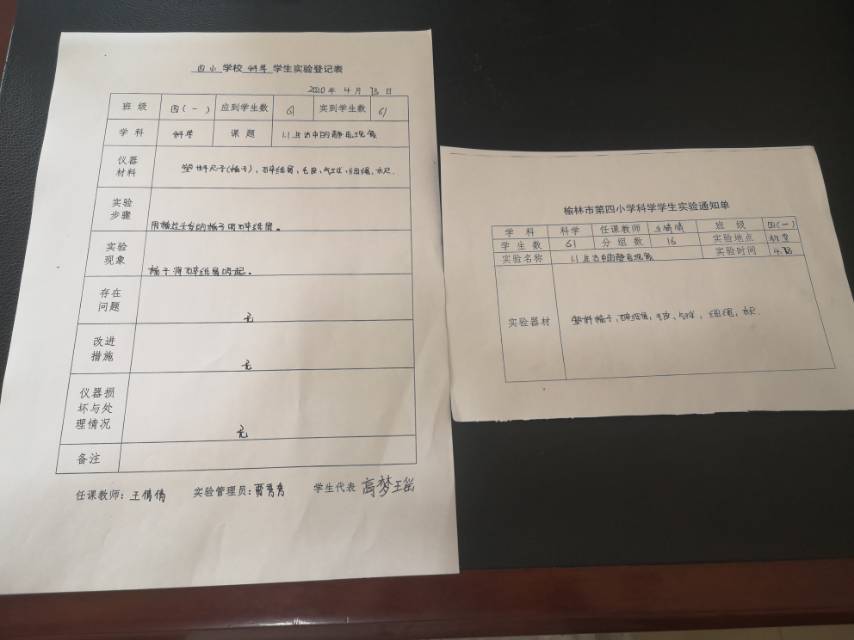 四小 学校 科学 学生实验登记表
2020 年 4 月 13 日
班 级 四(一) 应到学生数 61 实到学生数 61
学 科 科学 课 题 1.1 生活中的静电现象
仪器材料 塑料尺子(梳子),碎纸屑,毛皮,气球,细绳,水尺.
实验步骤 用梳过头发的梳子 碎纸屑。
实验现象 梳子将碎纸屑吸起。
存在问题 无
改进措施 无
仪器损坏与处理情况 无
备注
任课教师: 王倩倩 实验管理员: 贾秀秀 学生代表 高梦瑶
榆林市第四小学科学学生实验通知单
学 科 科学 任课教师 王倩倩 班 级 四(一)
学 生 数 61 分 组 数 16 实验地点 教室
实验名称 1.1 生活中的静电现象 实验时间 4.13
实验器材 塑料梳子,碎纸屑,毛皮,气球,细绳,